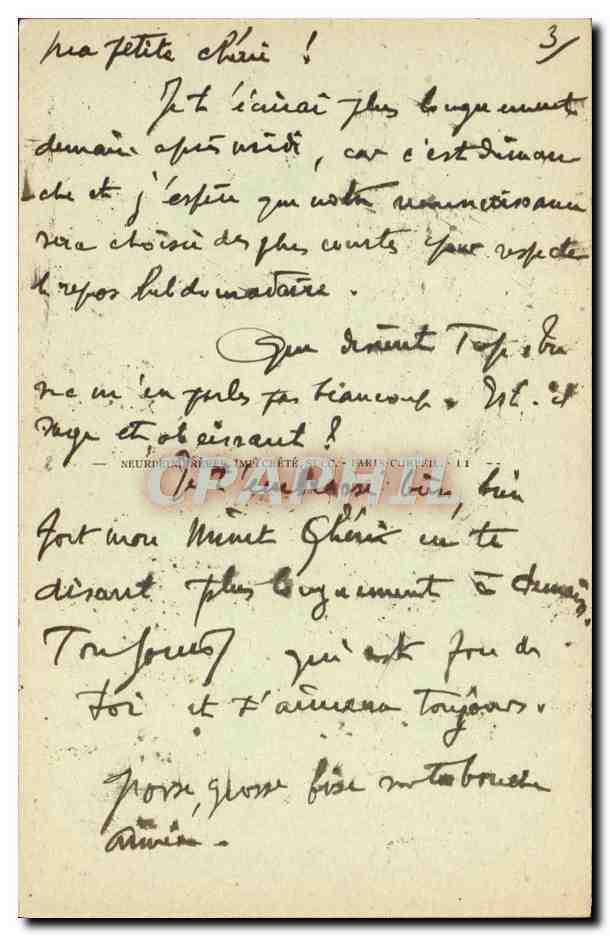 ma petite chérie !
3/
Je t'écrirai plus longuement
demain après midi, car c'est diman
che et j'espère que notre reconnaissance
sera choisie des plus courtes pour respecter
le repos hebdomadaire.
Que devient Top. Tu
ne m'en parles pas beaucoup. Est-il
sage et obéissant ?
NEURDEIN FRÈRES, IMP. CRÉTÉ, SUCC. - PARIS-CORBEIL. - 11
CPAPHIL
Je t'embrasse bien, bien
fort mon Minet Chéri en te
disant plus longuement à demain.
Ton qui est fou de
toi et t'aimera toujours.
grosse, grosse bise sur ta bouche
aimée.